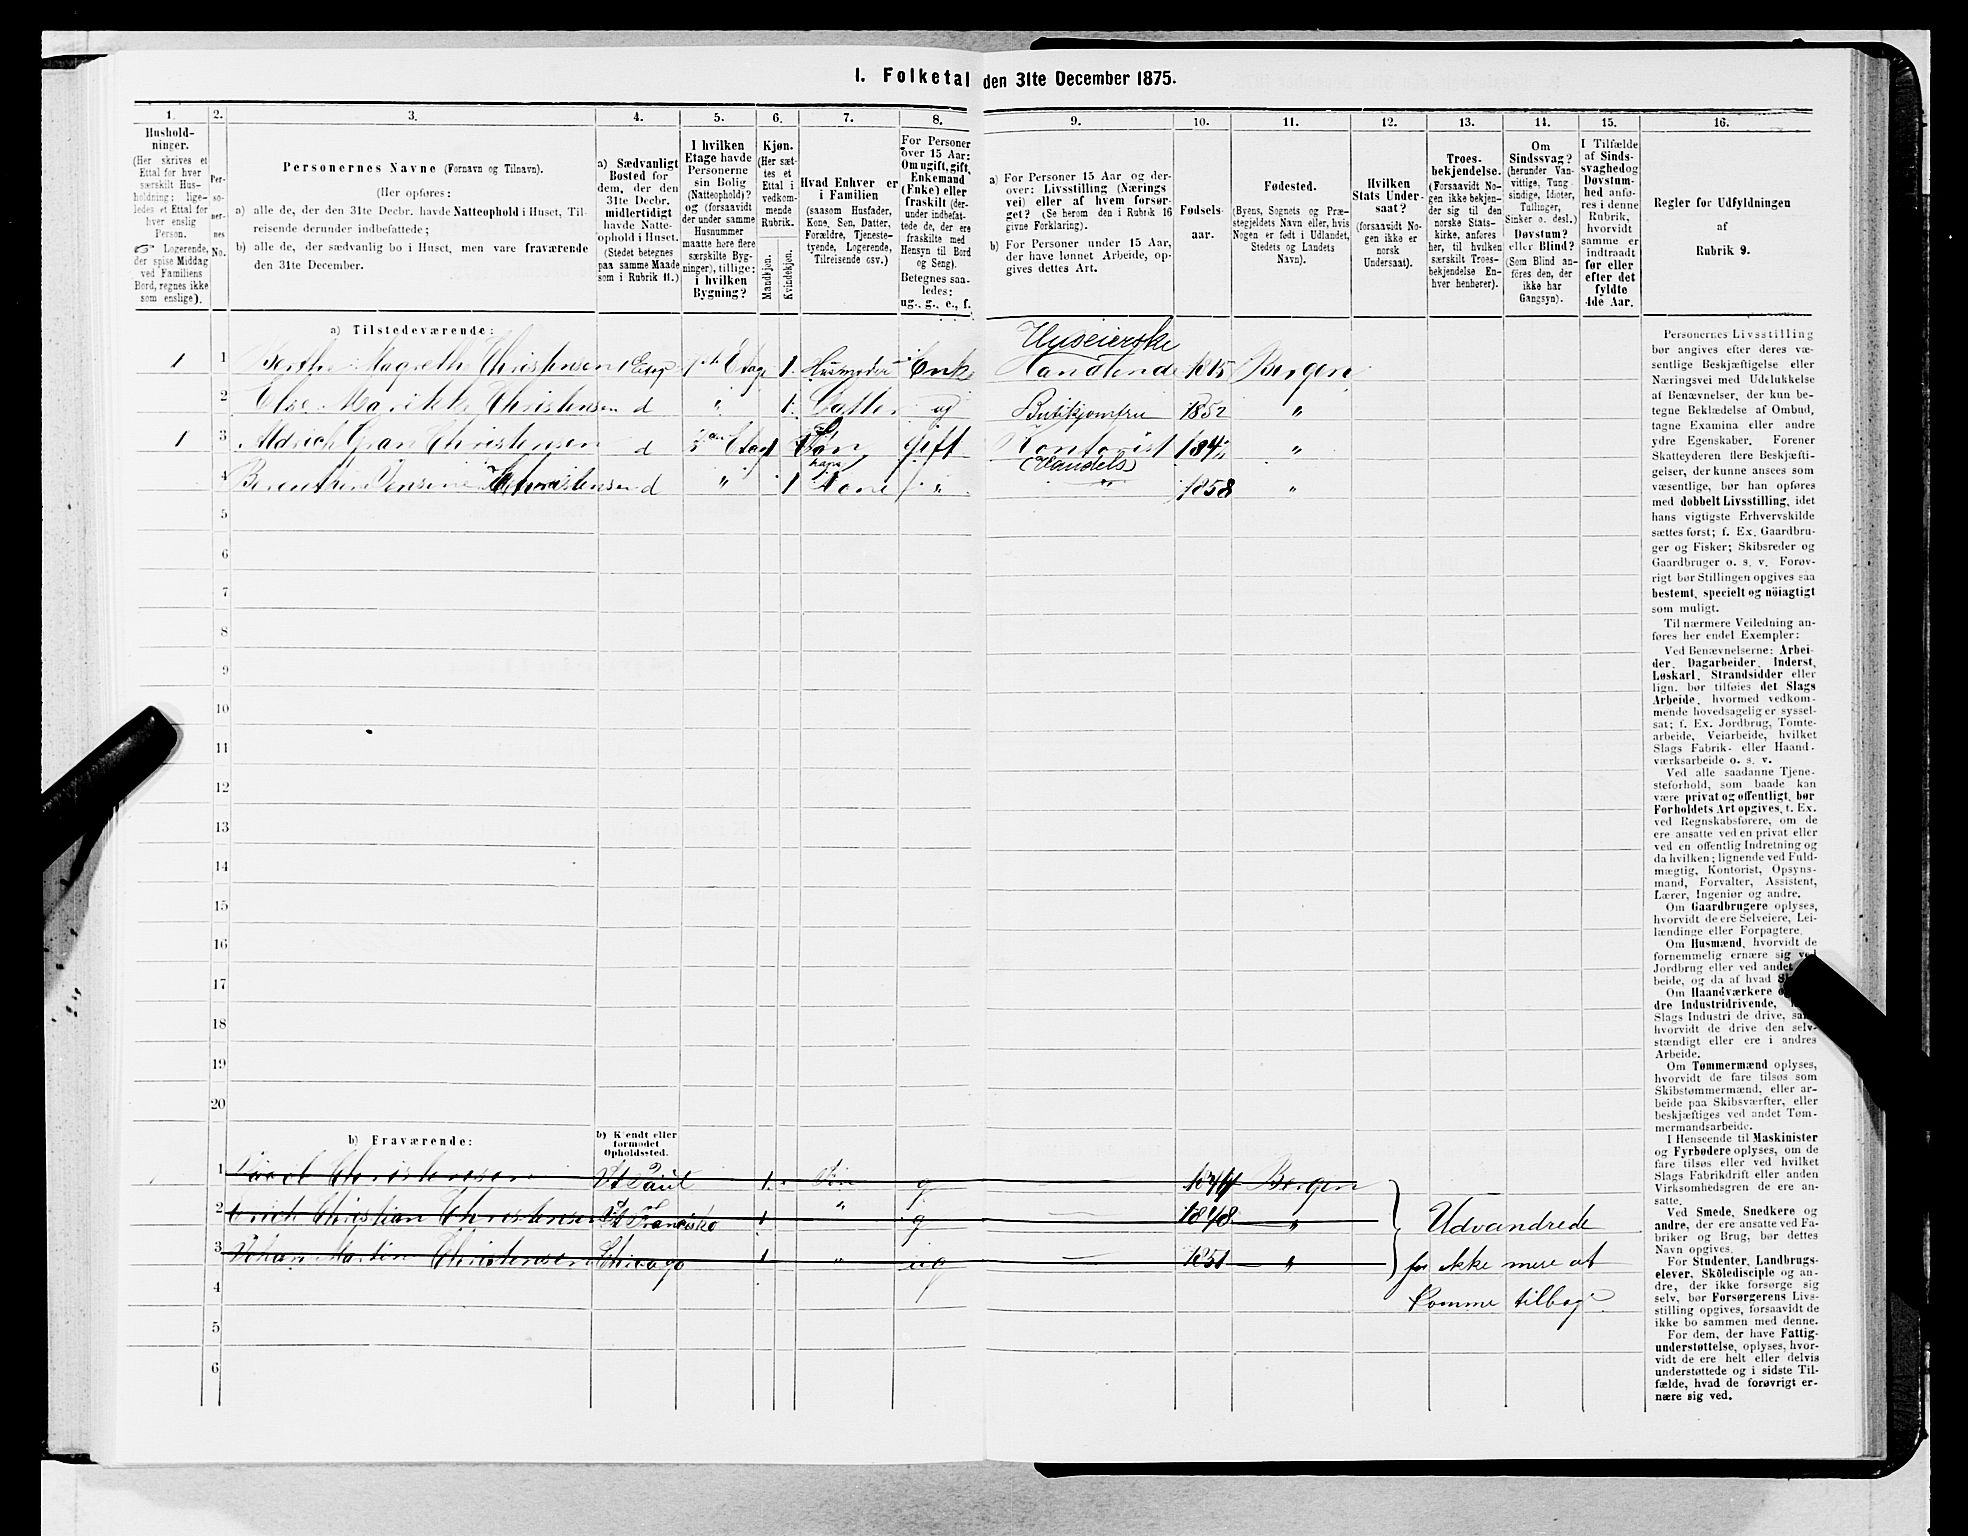 I. Folketal den 31te December 1875.
1. 2. 3. 4. 5. 6. 7. 8. 9. 10. 11. 12. 13. 14. 15. 16.
Hushold-
ninger.
(Her skrives et
Ettal for hver
særskilt Hus-
holdning; lige-
ledes et Ettal for
hver enslig
Person.
Logerende,
der spise Middag
ved Familiens
Bord, regnes ikke
som enslige).
Per-
so-
ner-
nes
No.
Personernes Navne (Fornavn og Tilnavn).
(Her opføres:
a) alle de, der den 31te Decbr. havde Natteophold i Huset, Til-
reisende derunder indbefattede;
b) alle de, der sædvanlig bo i Huset, men vare fraværende
den 31te December.
a) Sædvanligt
Bosted for
dem, der den
31te Decbr.
midlertidigt
havde Natte-
ophold i Huset.
(Stedet betegnes
paa samme Maade
som i Rubrik 11.)
I hvilken
Etage havde
Personerne
sin Bolig
(Natteophold)?
og (forsaavidt
der under samme
Husnummer
maatte høre flere
særskilte Byg-
ninger), tillige:
i hvilken
Bygning?
Kjøn.
(Her sæt-
tes et
Ettal i
vedkom-
mende
Rubrik.
Mandkjøn.
Kvindekjøn.
Hvad Enhver er
i Familien
(saasom Husfader,
Kone, Søn, Datter,
Forældre, Tjeneste-
tyende, Logerende,
Tilreisende osv.)
For Personer
over 15 Aar:
Om ugift, gift,
Enkemand
(Enke) eller
fraskilt (der-
under indbefat-
tede de, der ere
fraskilte med
Hensyn til Bord
og Seng).
Betegnes saa-
ledes:
ug., g., e., f.
a) For Personer 15 Aar og der-
over: Livsstilling (Nærings
vei) eller af hvem forsør-
get? (Se herom den i Rubrik 16
givne Forklaring).
b) For Personer under 15 Aar,
der have lønnet Arbeide, op-
gives dettes Art.
Fødsels-
aar.
Fødested.
(Byens, Sognets og Præ-
stegjeldets Navn eller, hvis
Nogen er født i Udlandet,
Stedets og Landets
Navn).
Hvilken
Stats Under-
saat?
(forsaavidt No-
gen ikke er
norsk
Undersaat).
Troes-
bekjendelse.
(Forsaavidt No-
gen ikke bekjen-
der sig til den
norske Stats-
kirke, anføres
her, til hvilken
særskilt Troes-
bekjendelse En-
hver henhører).
Om
Sindssvag?
(herunder Van-
vittige, Tung-
sindige, Idioter,
Tullinger,
Sinker o. desl.)
Døvstum?
eller Blind?
(Som Blind an-
føres den, der
ikke har
Gangsyn).
I Tilfælde
af Sinds-
svaghed og
Døvstum-
hed anfø-
res i denne
Rubrik,
hvorvidt
samme er
indtraadt
før eller
efter det
fyldte
4de Aar.
Regler for Udfyldningen
af
Rubrik 9.
a) Tilstedeværende:
Huseierske
1 1 Berthe Magrethe Christensen 1 Etage 1ste Etage 1. Husmoder Enke Handlende 1815 Bergen
2 Else Marikke Christensen d " 1. Datter ug Butikjomfru 1852 "
1 3 Aldrich Gran Christensen d Etag 1 Søn gift Kontorist "
(Handels)
4 Jensine Christensen d " 1 hans Kone " 1858 "
5
6
7
8
9
10
11
12
13
14
15
16
17
18
19
20
b) Fraværende:
b) Kjendt eller
formodet
Opholdssted.
1 Christensen St Paul 1. Søn g Bergen
2 Erich Christian Christensen St Francisko 1 " g 1848 "
3 Johan Martin Christensen Chicago 1 " ug 1851 "
4
5
6
Udvandrede
for ikke mere at
komme tilbage.
Personernes Livsstilling
bør angives efter deres væ-
sentlige Beskjæftigelse eller
Næringsvei med Udelukkelse
af Benævnelser, der kun be-
tegne Beklædelse af Ombud,
tagne Examina eller andre
ydre Egenskaber. Forener
Skatteyderen flere Beskjæfti-
gelser, der kunne ansees som
væsentlige, bør han opføres
med dobbelt Livsstilling, idet
hans vigtigste Erhvervskilde
sættes først; f. Ex. Gaardbru-
ger og Fisker; Skibsreder og
Gaardbruger o. s. v. Forøv-
rigt bør Stillingen opgives saa
bestemt, specielt og nöiagtigt
som muligt.
Til nærmere Veiledning an-
føres her endel Exempler:
Ved Benævnelserne: Arbei-
der, Dagarbeider, Inderst,
Løskarl, Strandsidder eller
lign. bør tilføies det Slags
Arbeide, hvormed vedkom-
mende hovedsagelig er syssel-
sat; f. Ex. Jordbrug, Tomte-
arbeide, Veiarbeide, hvilket
Slags Fabrik- eller Haand-
værksarbeide o. s. v.
Ved alle saadanne Tjene-
steforhold, som baade kan
være privat og offentligt, bør
Forholdets Art opgives, t. Ex.
ved Regnskabsførere, om de
ere ansatte ved en privat eller
ved en offentlig Indretning og
da hvilken; lignende ved Fuld-
mægtig, Kontorist, Opsyns-
mand, Forvalter, Assistent,
Lærer, Ingeniør og andre.
Om Gaardbrugere oplyses,
hvorvidt de ere Selveiere, Lei-
lændinge eller Forpagtere.
Om Husmænd, hvorvidt de
fornemmelig ernære sig ved
Jordbrug eller ved andet
beide, og da af hvad
Om Haandværkere
dre Industridrivende,
Slags Industri de drive, samt
hvorvidt de drive den selv-
stændigt eller ere i andres
Arbeide.
Om Tømmermænd oplyses,
hvorvidt de fare tilsøs som
Skibstømmermænd, eller ar-
beide paa Skibsværfter, eller
beskjæftiges ved andet Tøm-
mermandsarbeide.
I Henseende til Maskinister
og Fyrbødere oplyses, om de
fare tilsøs eller ved hvilket
Slags Fabrikdrift eller anden
Virksomhedsgren de ere an-
satte.
Ved Smede, Snedkere og
andre, der ere ansatte ved Fa-
briker og Brug, bør dettes
Navn opgives.
For Studenter, Landbrugs-
elever, Skoledisciple og an-
dre, der ikke forsørge sig
selv, bør Forsørgerens Livs-
stilling opgives, forsaavidt de
ikke bo sammen med denne.
For dem, der have Fattig-
understøttelse, oplyses, hvor-
vidt de ere helt eller delvis
understøttede og i sidste Til-
fælde, hvad de forøvrigt er-
nære sig ved.